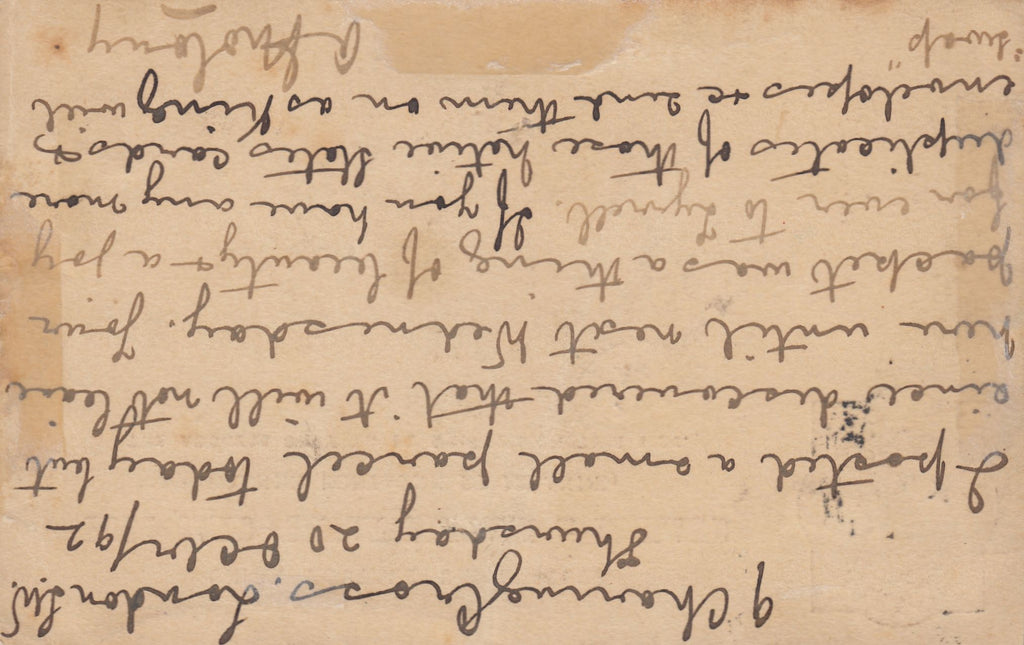 9 Charing Cross. London S.W.
Thursday 20 Octbr/92
I posted a small parcel today but
since discovered that it will not leave
here until next Wednesday. Your
packet was a thing of beauty & a joy
for ever to Tyrell. If you have any more
duplicates of those Native States, cards &
envelopes &c send them on as King will
"swap"